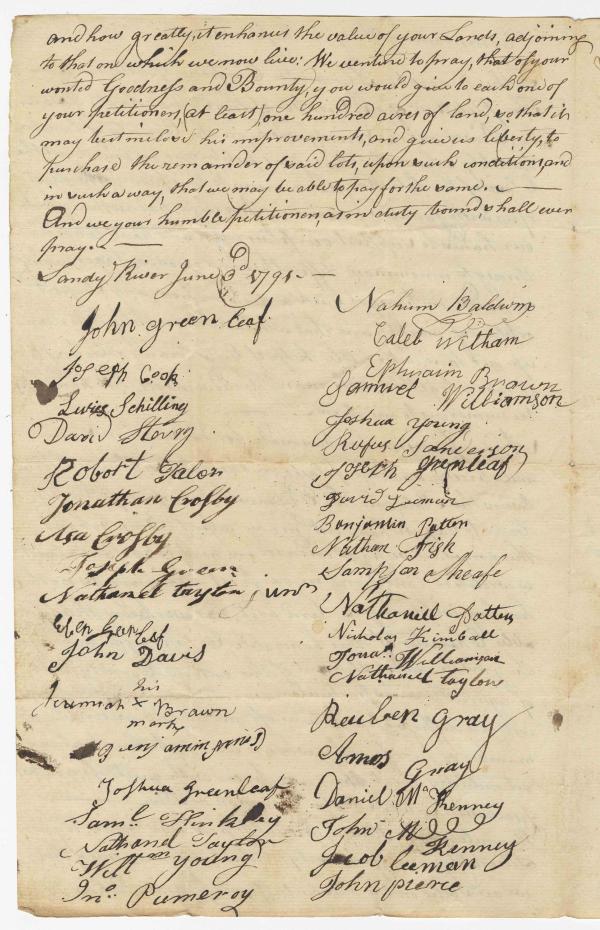 and how greatly it enhances the value of your Lands, adjoining
to that on which we now live: We venture to pray, that of your
wonted Goodness and Bounty, you would give to each one of
your petitioners, (at least) one hundred acres of land, so that it
may best inclose his improvements, and give us liberty, to
purchase the remainder of said lots, upon such conditions, and
in such a way, that we may be able to pay for the same. —
And we your humble petitioners, as in duty bound, shall ever
pray. —
Sandy River June 3d 1791. —
John green leaf
Joseph Cook
Lewis Schilling
David Storry
Robort
Jonathan Crosby
Asa Crosby
Joseph Green
Nathanel taylon junr
Eben Greenleaf
John Davis
his
Jeremiah x Brown
mark
Benjamin
Joshua Greenleaf
Saml. Hinkley
Nathanel Taylor
Willm young
Jno. Pumeroy
Nahum Baldwin
Caleb Witham
Ephraim Brown
Samuel Williamson
Joshua Young
Rufus Sanderson
Joseph Greenleaf
David Leeman
Benjamin Patten
Nathan Fish
Sampson Sheafe
Nathaniell Patten
Nicholas Kimball
Jonan. Williamson
Nathaniel taylon
Reuben Gray
Amos Gray
Daniel Mc Kenney
John
Kenney
Jacob leeman
John pierce